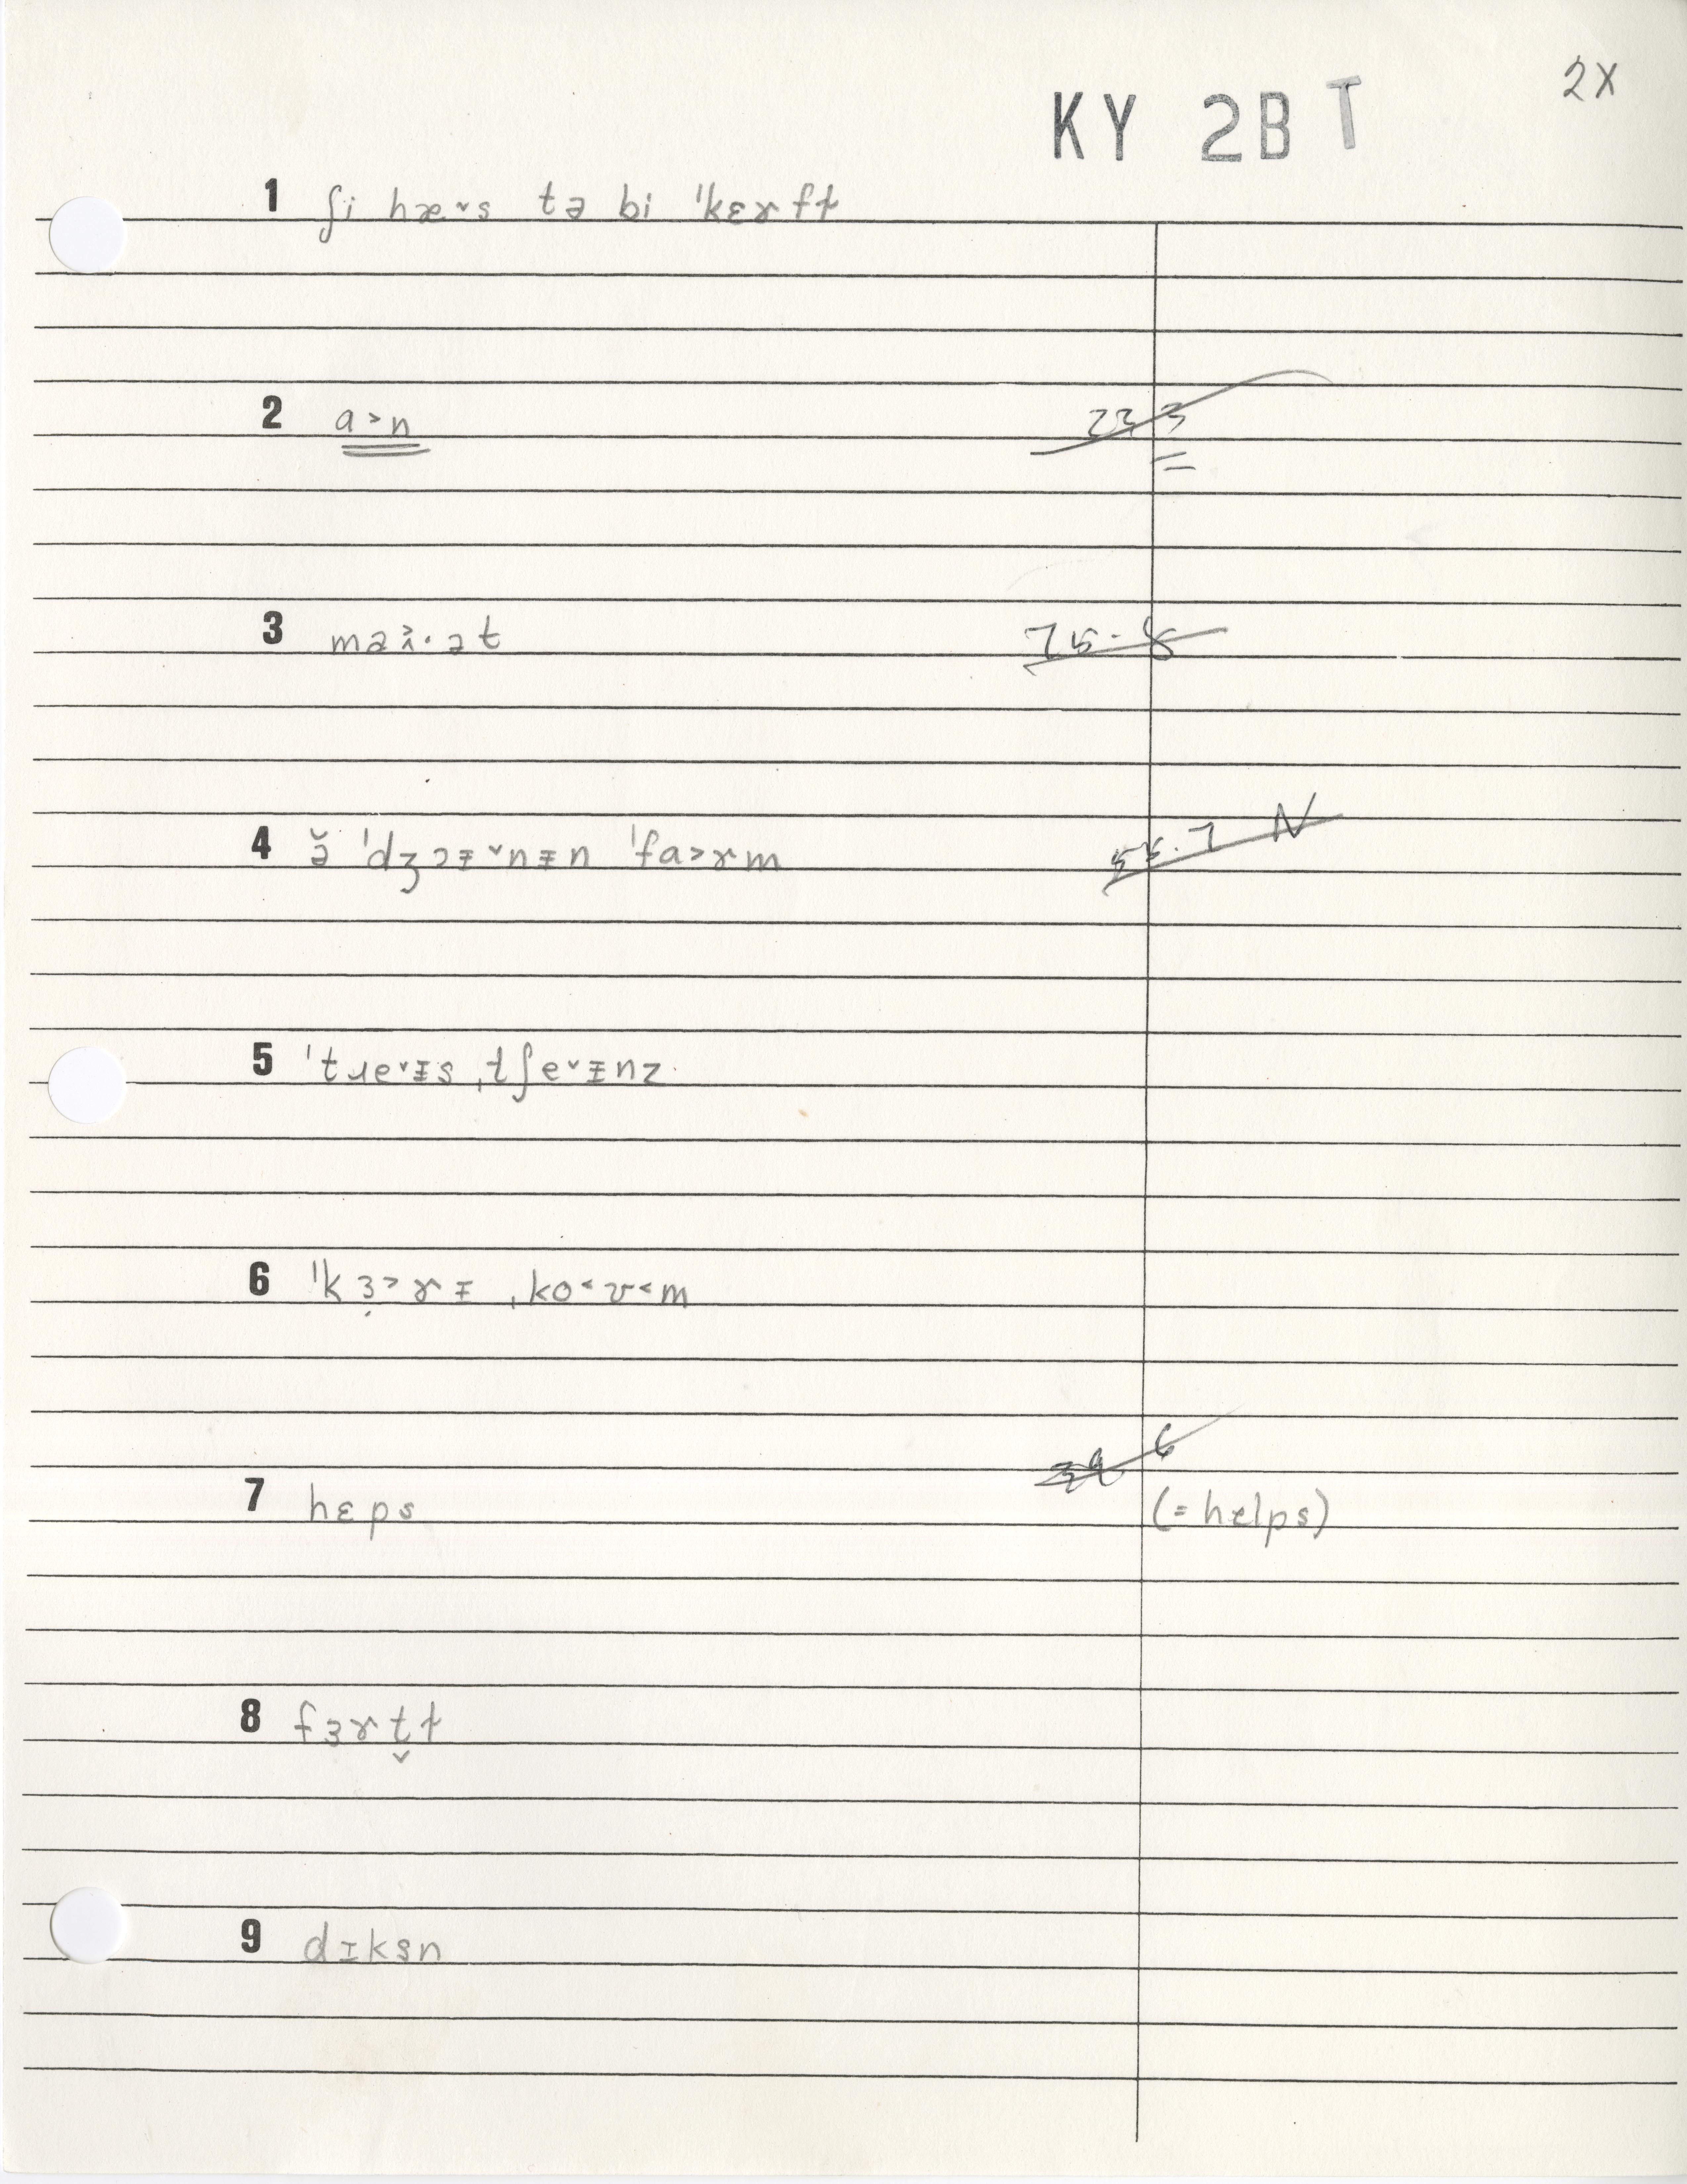 2X
KY 2B T
1 ʃi hæ˅s tə bi ˈkɛɤft
2 a˃n 22 3
3 məɨ̞˃·ət 75·8
4 ə̆ ˈdʒɔᵻ˅nᵻn ˈfa˃ɤm N
5 ˈtɹe˅ᵻs ˌtʃe˅ᵻnz
6 ˈkɜ̣˃ɤᵻ ˌko˂ʊ˂m
7 hɛps 39 6
(= helps)
8 fɜɤt̬ɫ
9 dɪksn